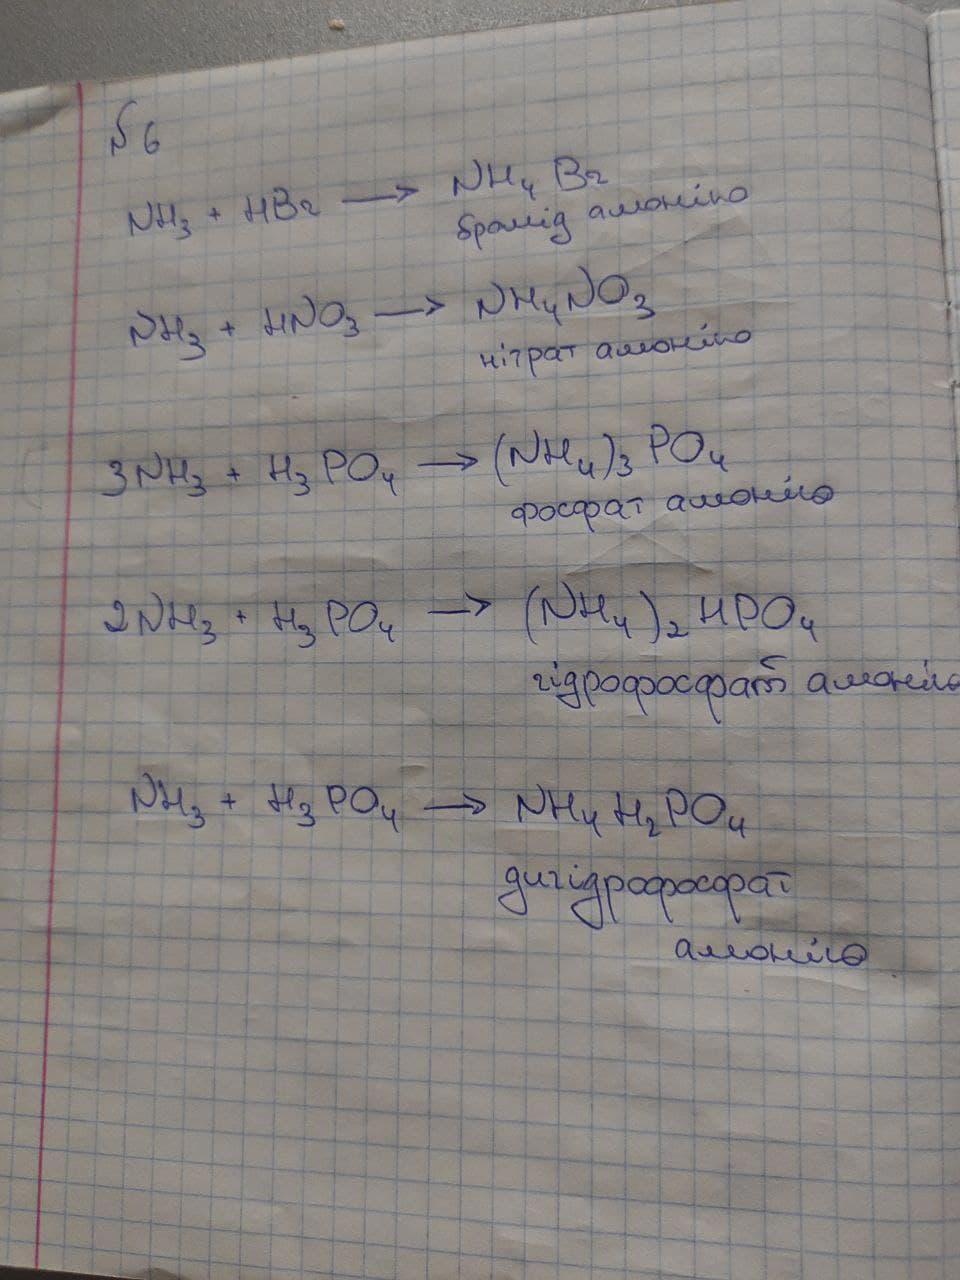 №6
NH₃ + HBr → NH₄Br
бромід амонію
NH₃ + HNO₃ → NH₄NO₃
нітрат амонію
3NH₃ + H₃PO₄ → (NH₄)₃PO₄
фосфат амонію
2NH₃ + H₃PO₄ → (NH₄)₂HPO₄
гідрофосфат амонію
NH₃ + H₃PO₄ → NH₄H₂PO₄
дигідрофосфат
амонію